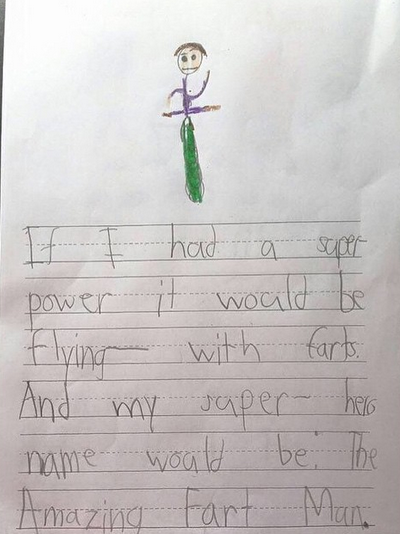 If I had a super
power it would be
flying with farts.
And my super hero
name would be: The
Amazing Fart Man.